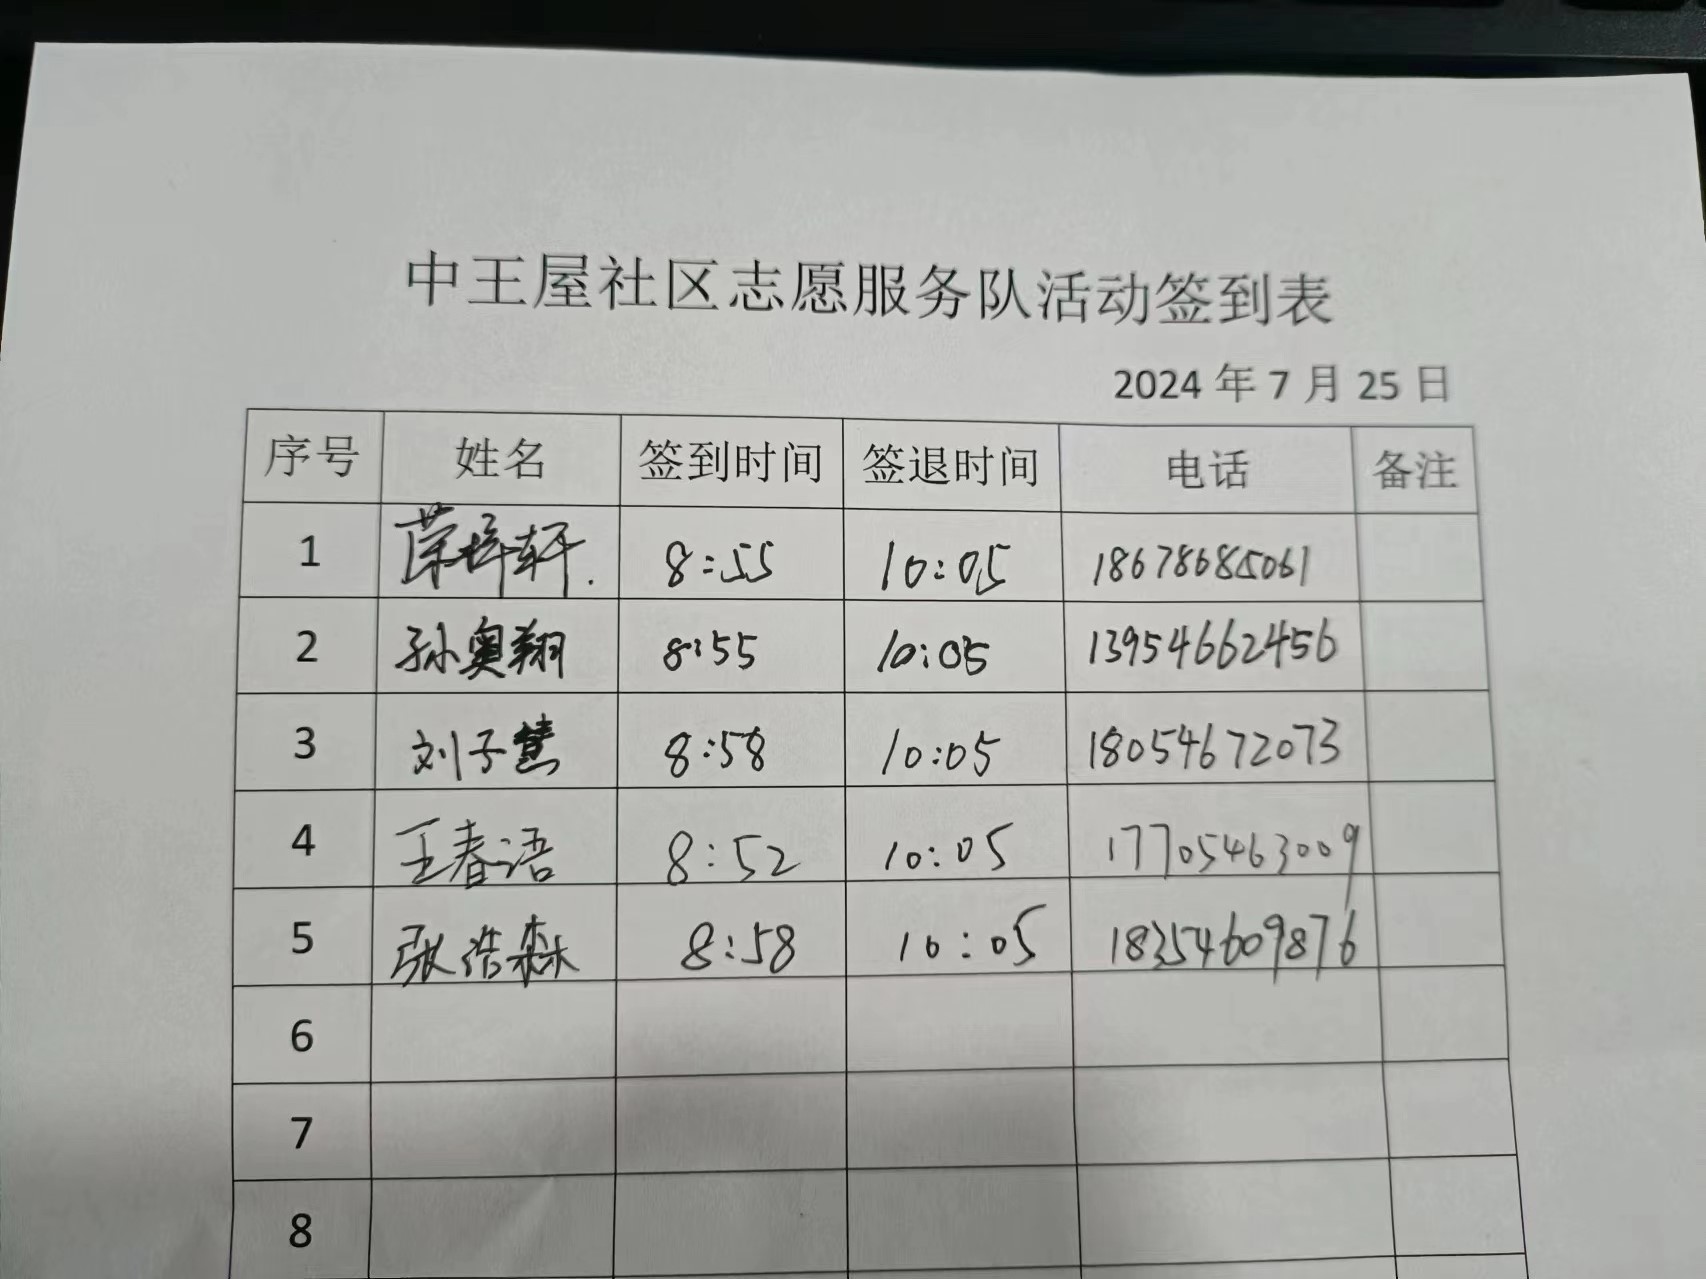 中王屋社区志愿服务队活动签到表
2024年7月25日
序号 姓名 签到时间 签退时间 电话 备注
1 荣梓轩. 8:55 10:05 18678685061
2 孙奥翔 8:55 10:05 13954662456
3 刘子慧 8:58 10:05 18054672073
4 王春语 8:52 10:05 17705463009
5 张浩森 8:58 10:05 18354609876
6
7
8